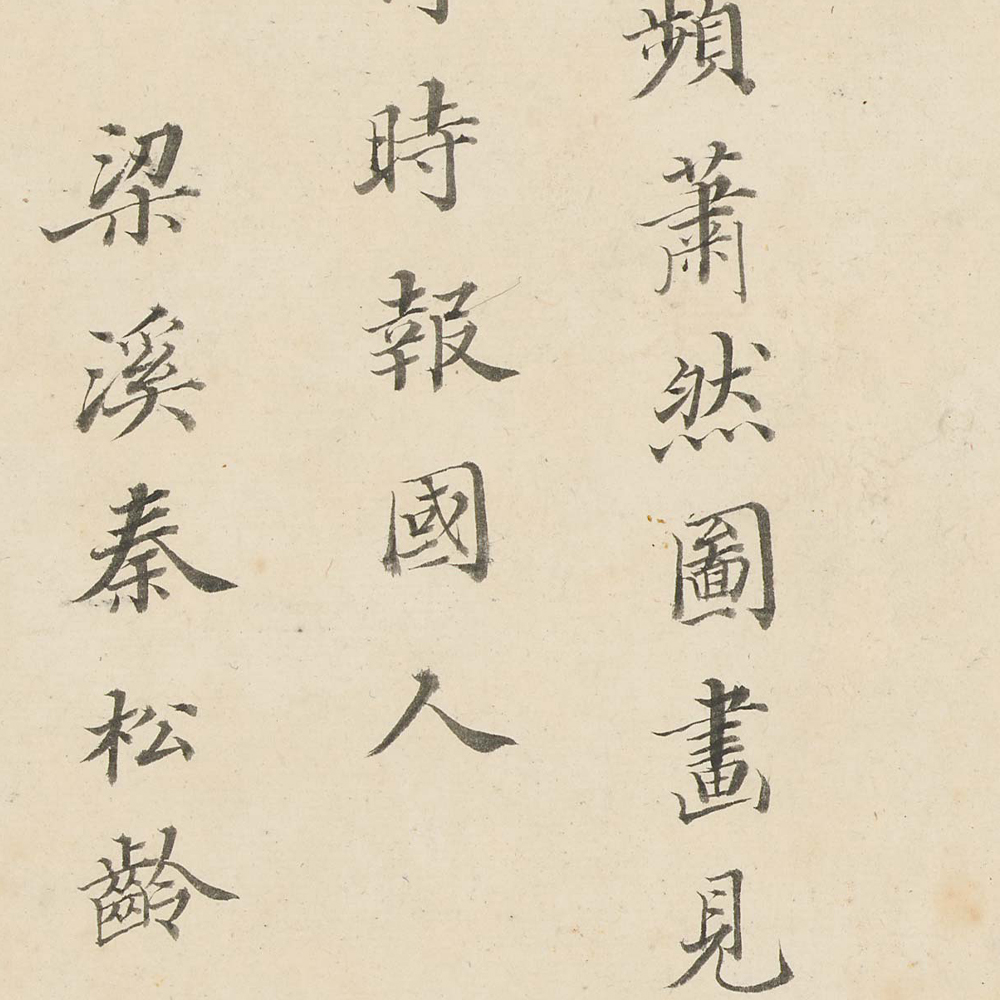 頻蕭然圖畫見
時報國人
梁溪秦松齡